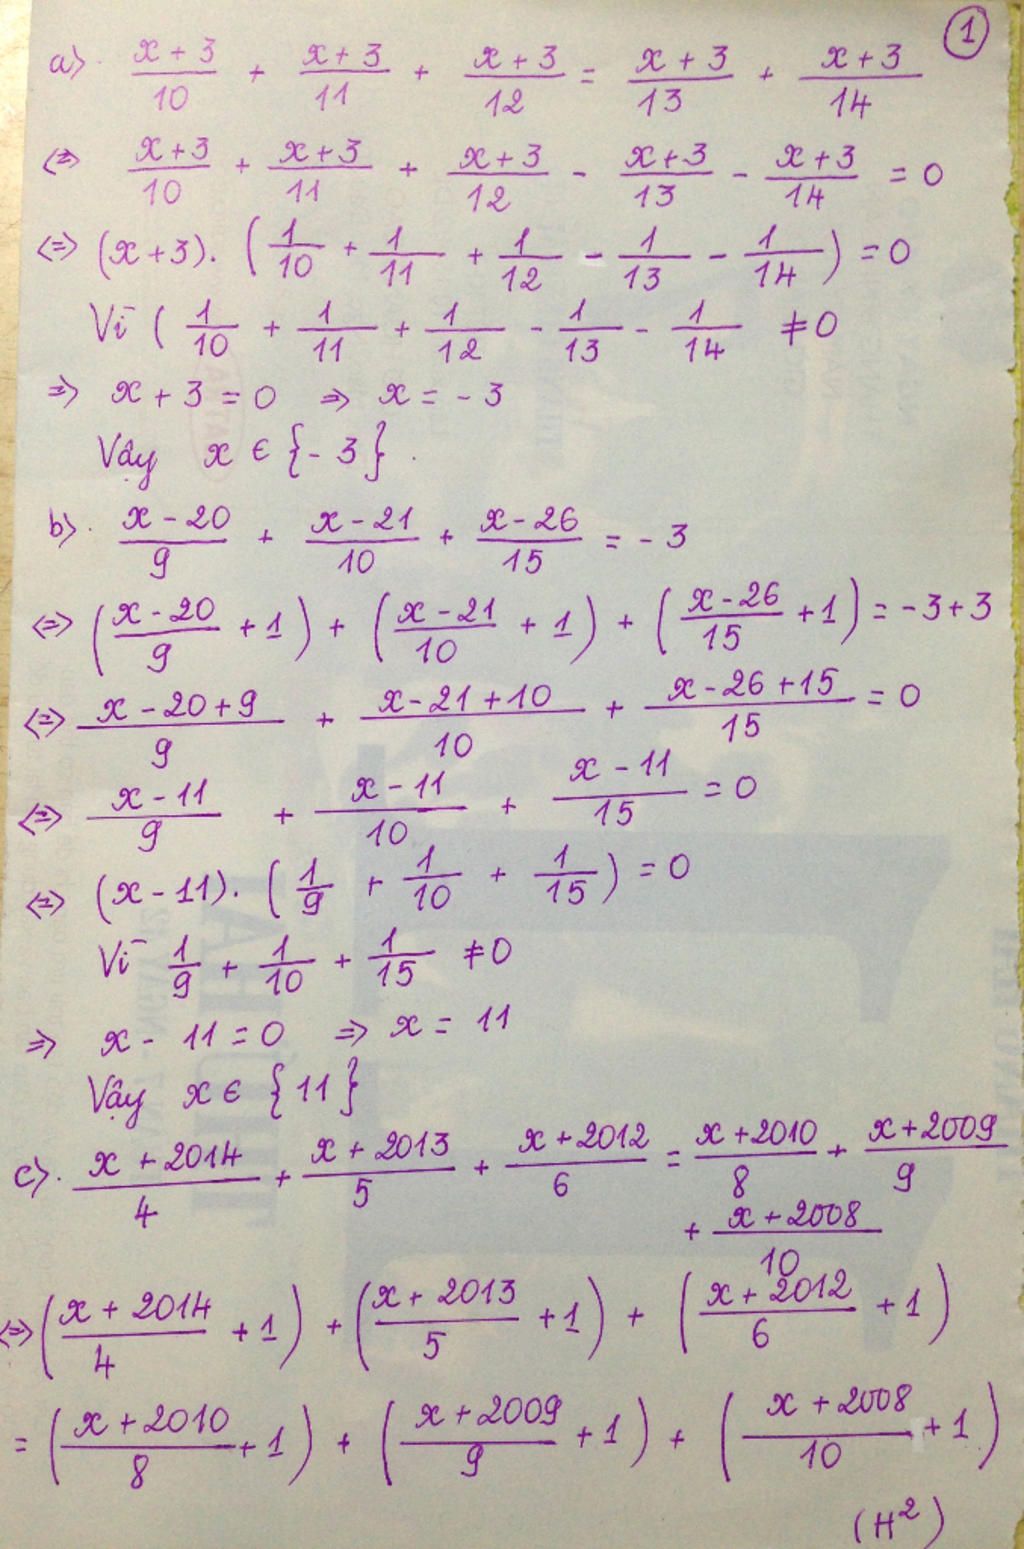 1
a) (x + 3)/10 + (x + 3)/11 + (x + 3)/12 = (x + 3)/13 + (x + 3)/14
<=> (x + 3)/10 + (x + 3)/11 + (x + 3)/12 - (x + 3)/13 - (x + 3)/14 = 0
<=> (x + 3). (1/10 + 1/11 + 1/12 - 1/13 - 1/14) = 0
Vì ( 1/10 + 1/11 + 1/12 - 1/13 - 1/14 ≠ 0
=> x + 3 = 0 => x = - 3
Vậy x ∈ {- 3}.
b). (x - 20)/9 + (x - 21)/10 + (x - 26)/15 = - 3
<=> ((x - 20)/9 + 1) + ((x - 21)/10 + 1) + ((x - 26)/15 + 1) = -3 + 3
<=> (x - 20 + 9)/9 + (x - 21 + 10)/10 + (x - 26 + 15)/15 = 0
<=> (x - 11)/9 + (x - 11)/10 + (x - 11)/15 = 0
<=> (x - 11). (1/9 + 1/10 + 1/15) = 0
Vì 1/9 + 1/10 + 1/15 ≠ 0
=> x - 11 = 0 => x = 11
Vậy x ∈ {11}
c). (x + 2014)/4 + (x + 2013)/5 + (x + 2012)/6 = (x + 2010)/8 + (x + 2009)/9
+ (x + 2008)/10
<=> ((x + 2014)/4 + 1) + ((x + 2013)/5 + 1) + ((x + 2012)/6 + 1)
= ((x + 2010)/8 + 1) + ((x + 2009)/9 + 1) + ((x + 2008)/10 + 1)
(H²)